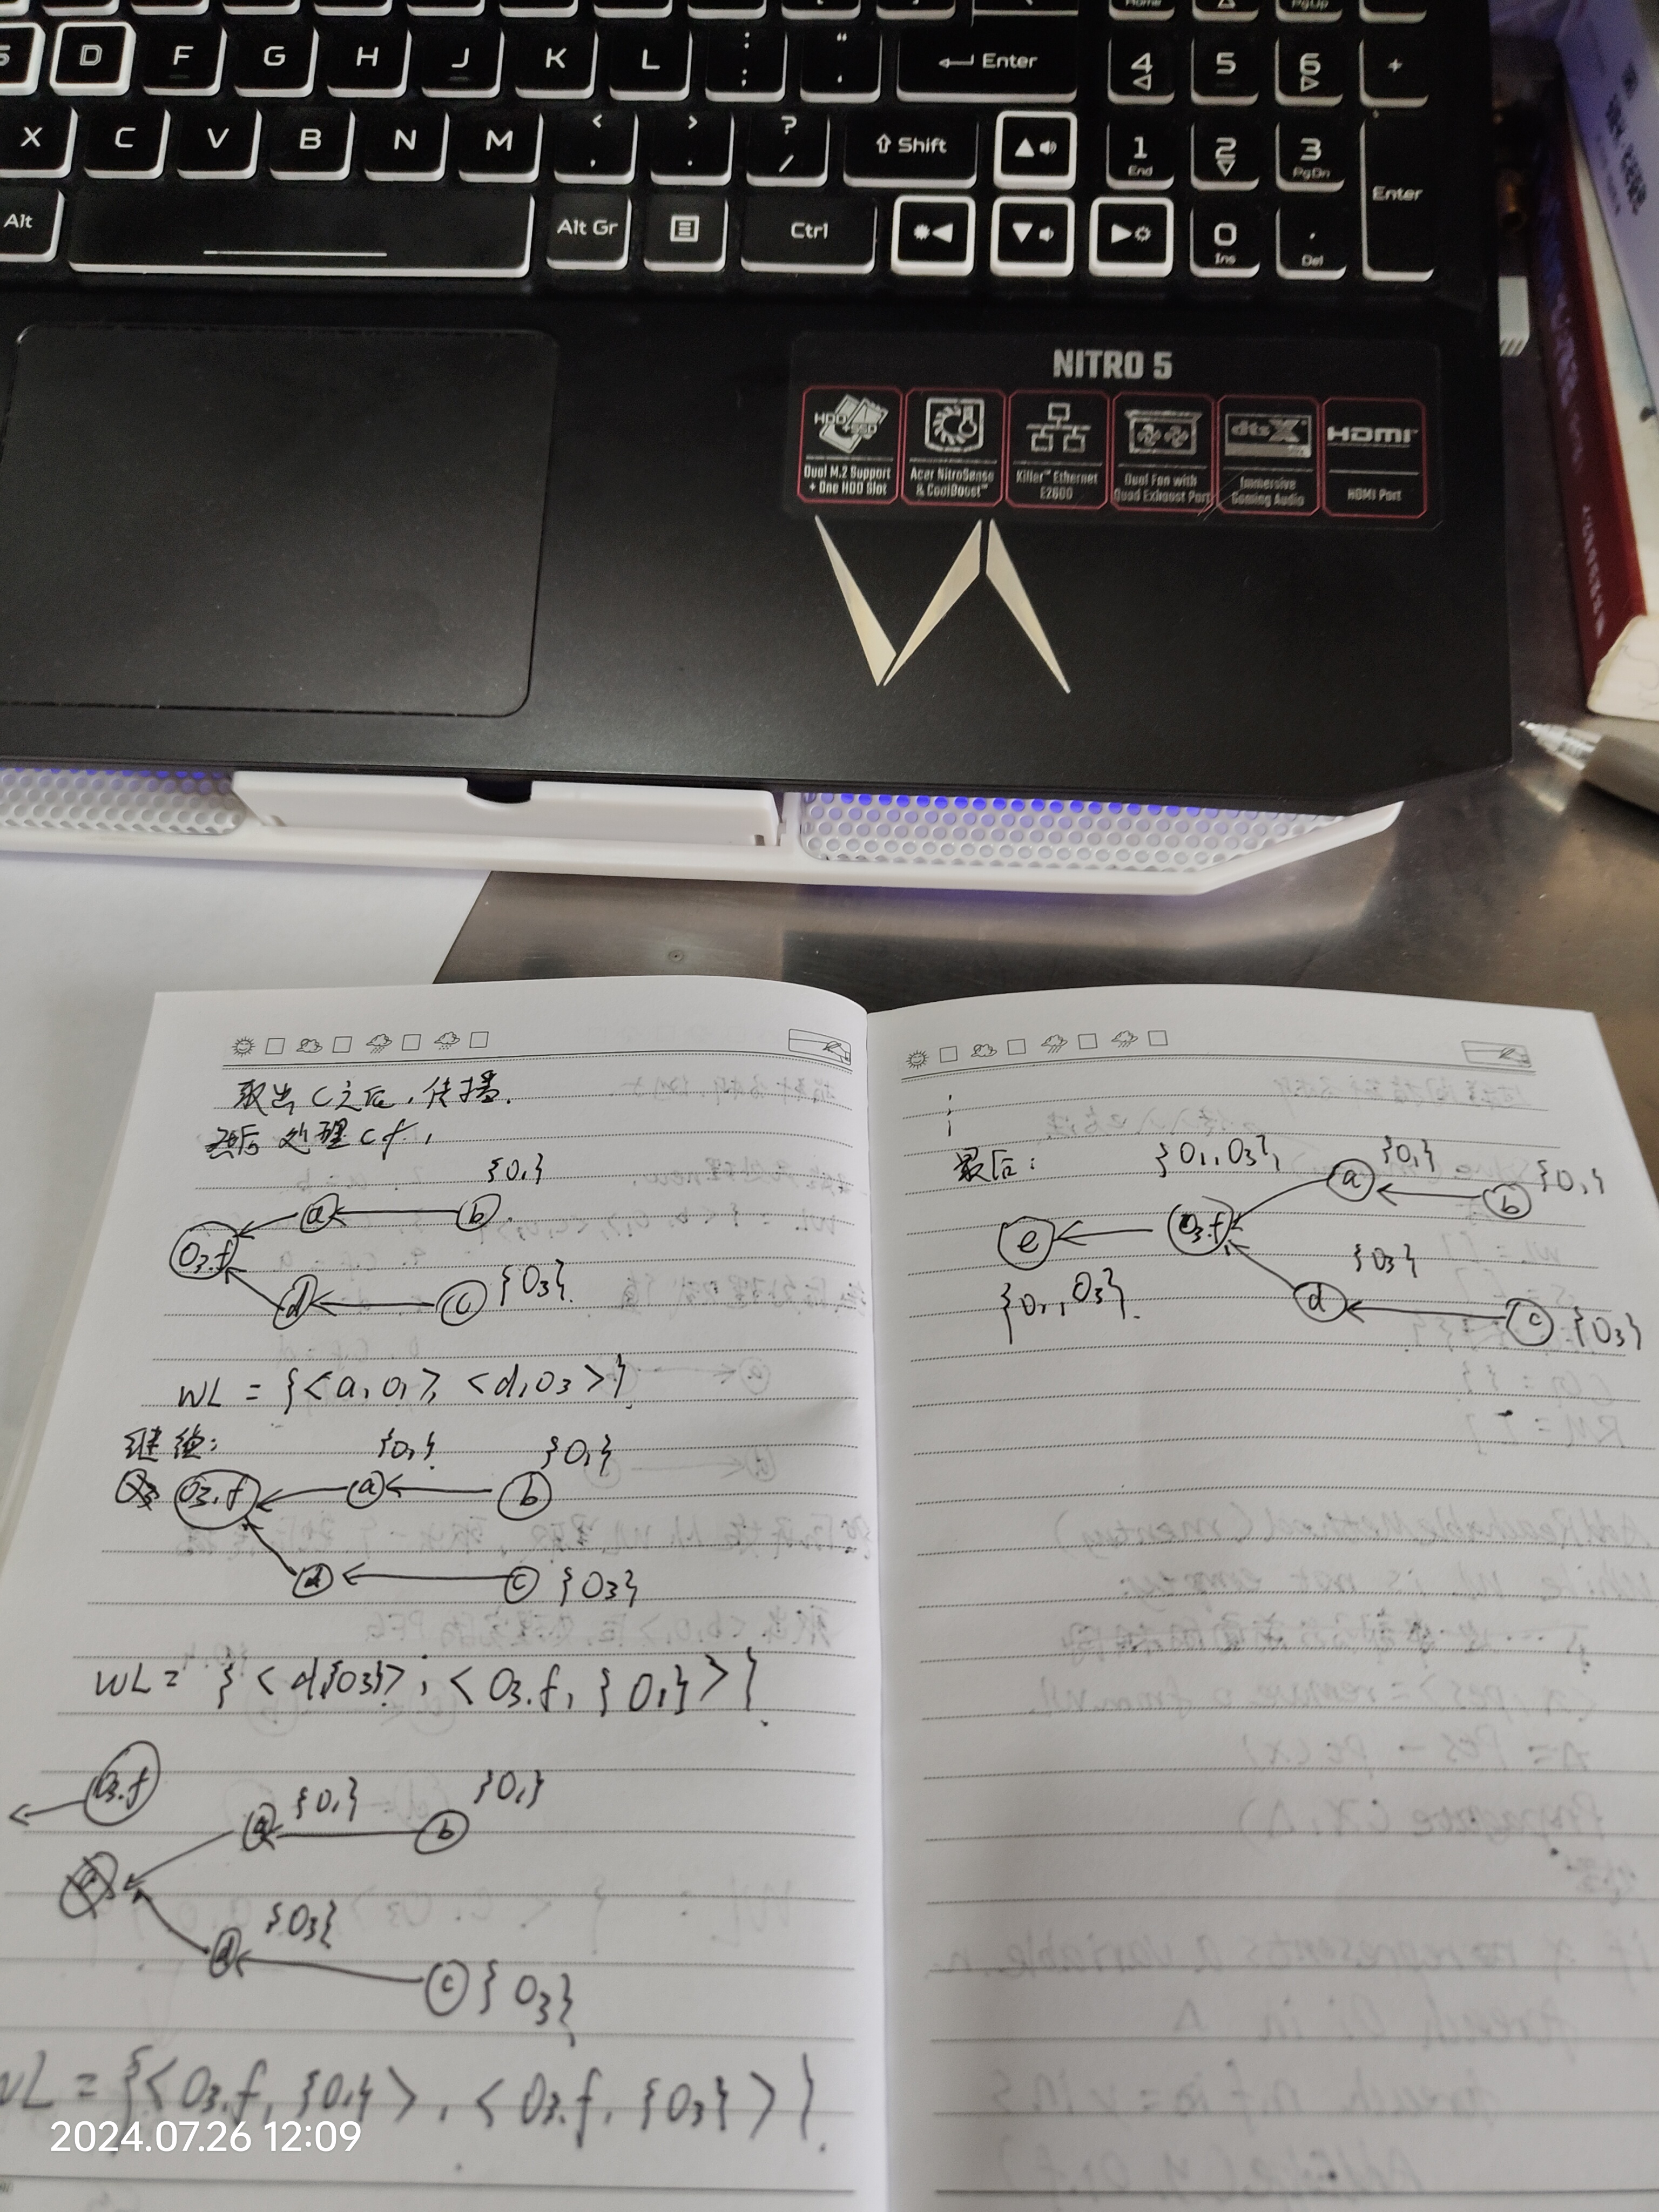 S D F G H J K L : ; " ' Enter 4 5 6 +
X C V B N M < , > . ? / Shift 1 End 2 3 PgDn Enter
Alt Alt Gr Ctrl 0 Ins . Del
NITRO 5
HDD+SSD
Dual M.2 Support + One HDD Slot
Acer NitroSense & CoolBoost™
Killer™ Ethernet E2600
Dual Fan with Quad Exhaust Port
dts X
Immersive Gaming Audio
HDMI
HDMI Port
取出 C之后,传播.
然后 处理 c.f,
{O₁}
O₃.f a b
d c {O₃}.
WL = {<a, O₁>, <d, O₃>}
继续:
{O₁} {O₁}
O₃.f a b
d c {O₃}
WL = {<d,{O₃}>, <O₃.f, {O₁}>}.
O₃.f a {O₁} b {O₁}
d {O₃}
c {O₃}
WL = {<O₃.f, {O₁}>, <O₃.f, {O₃}>}.
最后:
{O₁, O₃} a {O₁} b {O₁}
e O₃.f
{O₁, O₃}. d {O₃}
c {O₃}
2024.07.26 12:09